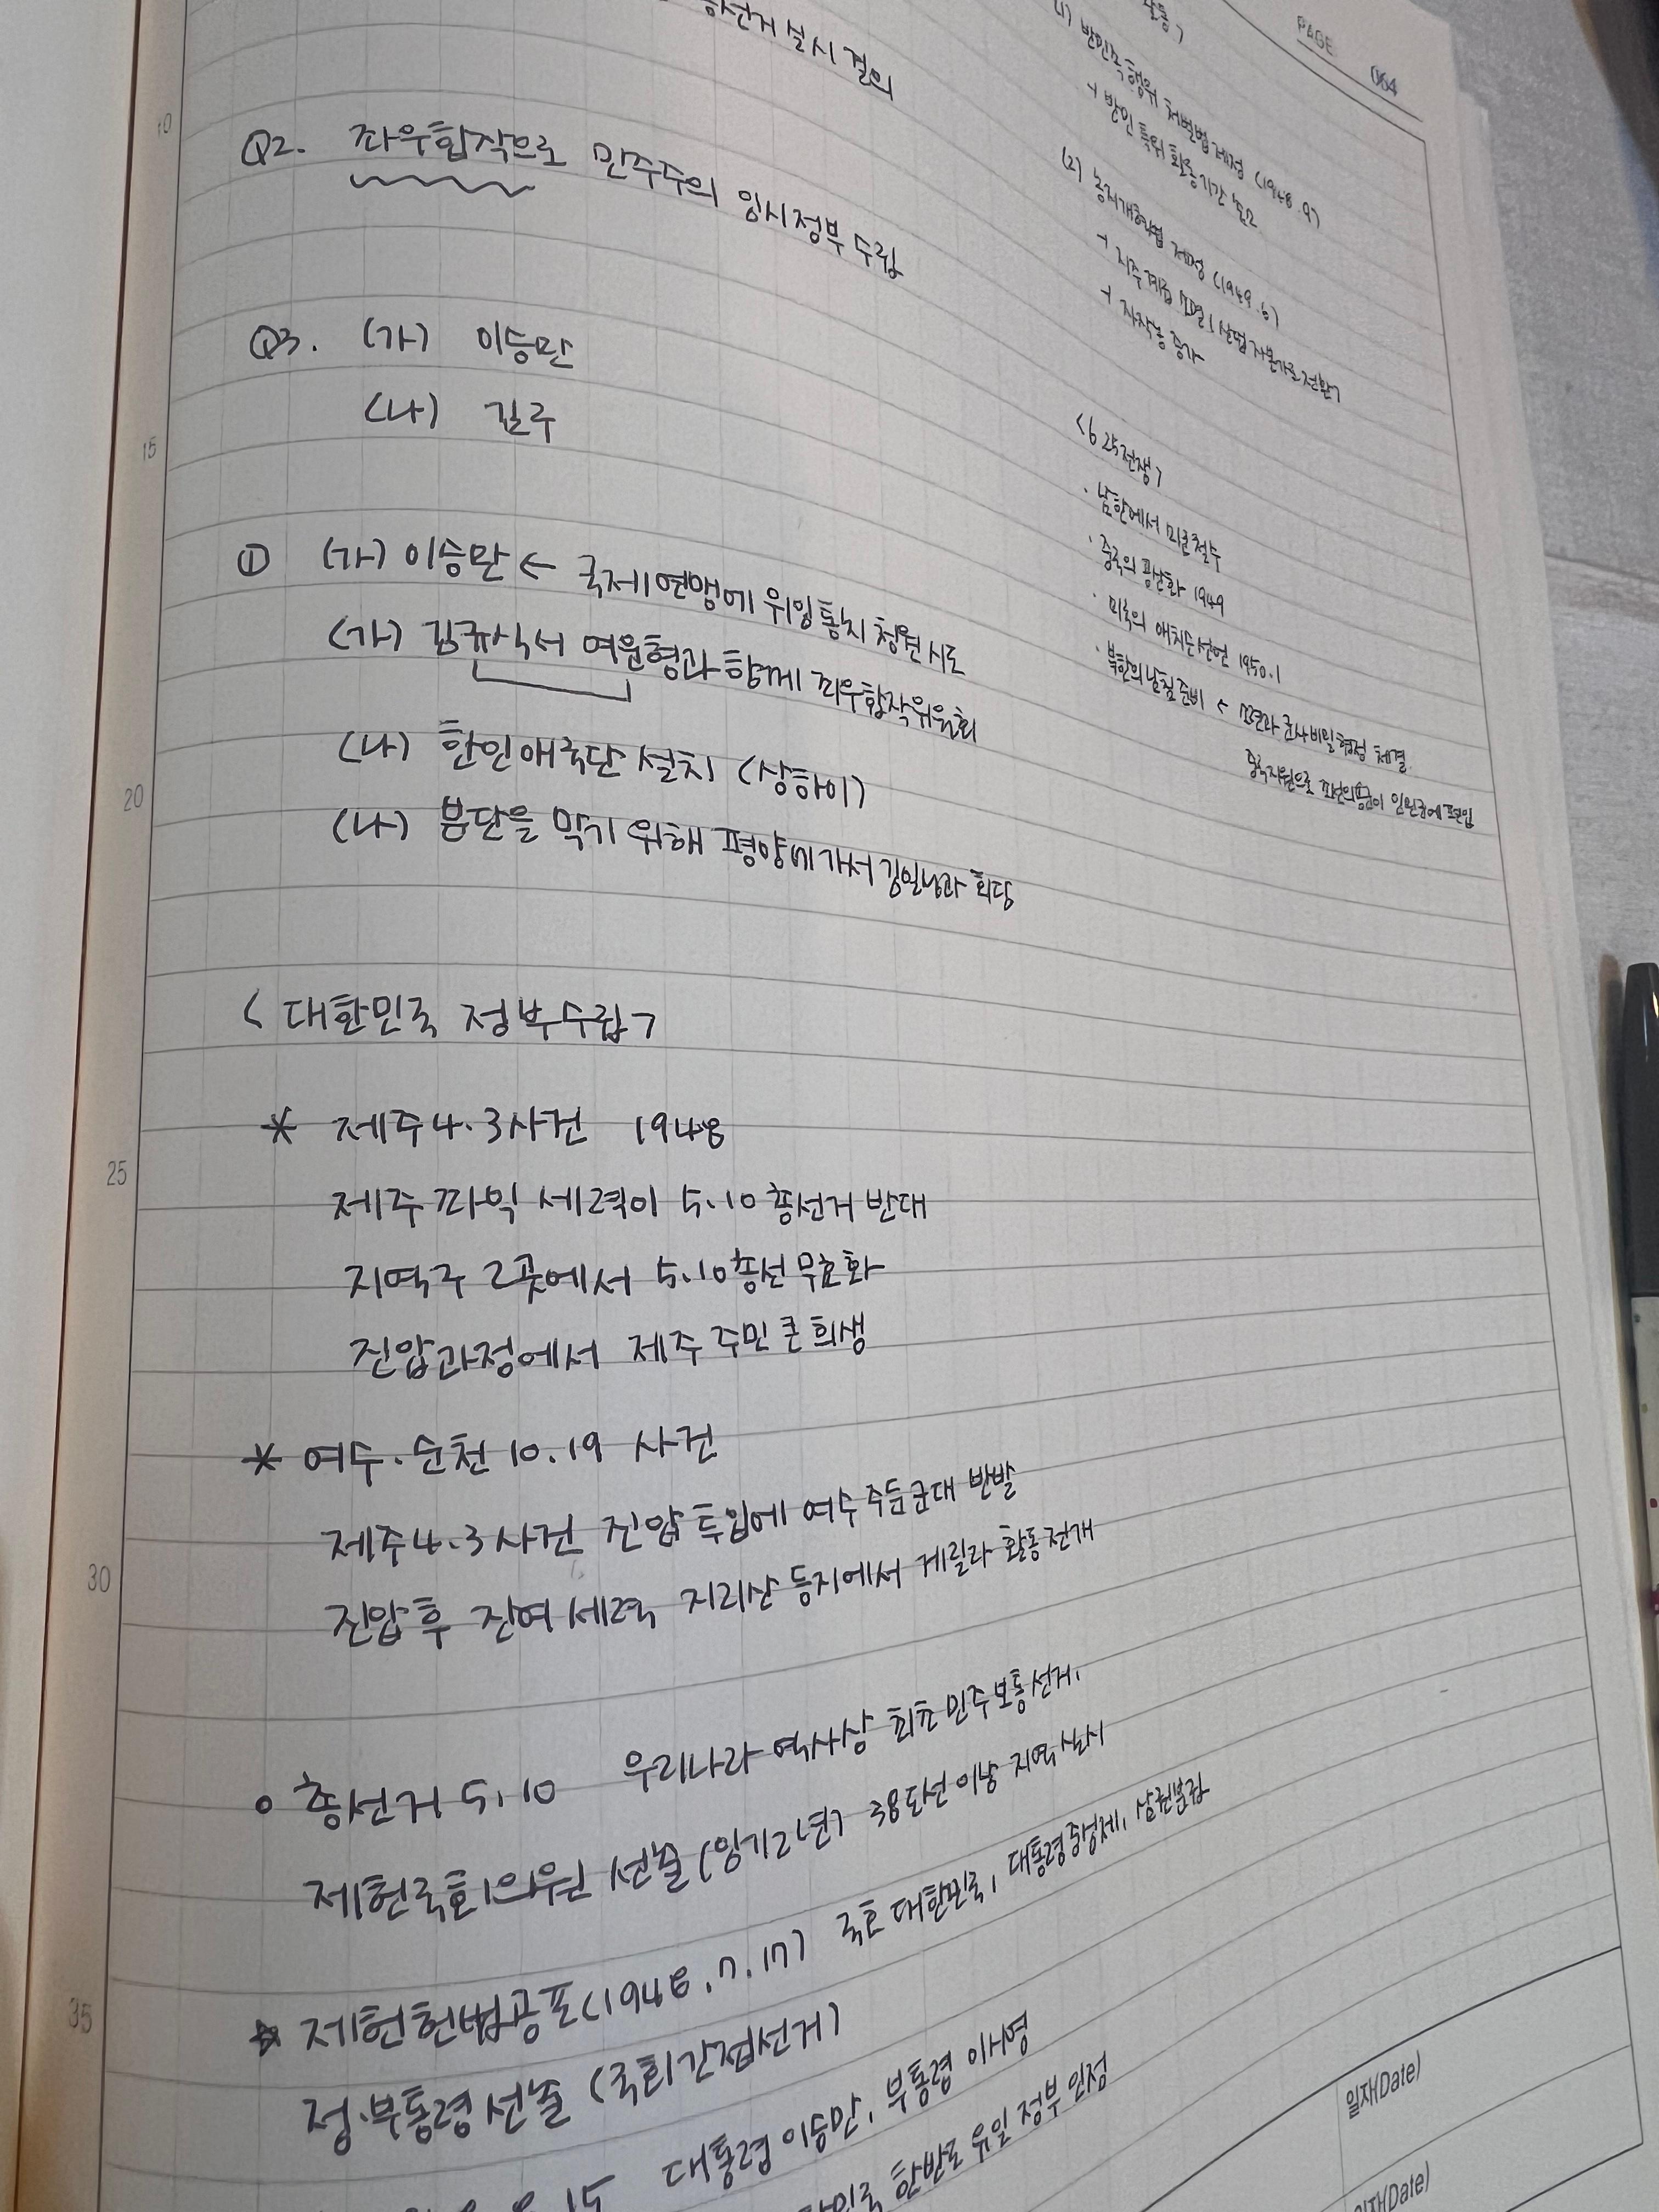 총선거 실시 결의
Q2. 좌우합작으로 민주주의 임시정부 수립
Q3. (가) 이승만
(나) 김구
① (가) 이승만 ← 국제연맹에 위임통치 청원 시도
(가) 김규식서 여운형과 함께 좌우합작위원회
(나) 한인애국단 설치 (상하이)
(나) 분단을 막기 위해 평양에 가서 김일성과 회담
<대한민국 정부수립>
* 제주 4.3사건 1948
제주 좌익 세력이 5.10 총선거 반대
지역구 2곳에서 5.10총선 무효화
진압과정에서 제주 주민 큰 희생
* 여수.순천 10.19 사건
제주4.3사건 진압 투입에 여수 주둔군대 반발
진압 후 잔여 세력 지리산 등지에서 게릴라 활동 전개
○ 총선거 5.10 우리나라 역사상 최초 민주 보통선거,
제헌국회의원 선출 (임기2년) 38도선 이남 지역 실시
☆ 제헌헌법공포(1948.7.17) 국호 대한민국, 대통령중심제, 삼권분립
정.부통령 선출 (국회 간접선거)
15 대통령 이승만, 부통령 이시영
한반도 유일 정부 인정
PAGE 064
(1) 반민족행위 처벌법 제정 (1948.9)
+ 반민특위 활동기간 축소
(2) 농지개혁법 제정 (1949.6)
+ 지주계급 소멸(산업 자본가로 전환)
+ 자작농 증가
<6 25전쟁>
· 남한에서 미군철수
· 중국의 공산화 1949
· 미국의 애치슨선언 1950.1
· 북한의 남침 준비 ← 소련과 군사비밀협정 체결
중국지원으로 조선의용군이 인민군에 편입
10
15
20
25
30
35
일자(Date)
일자(Date)